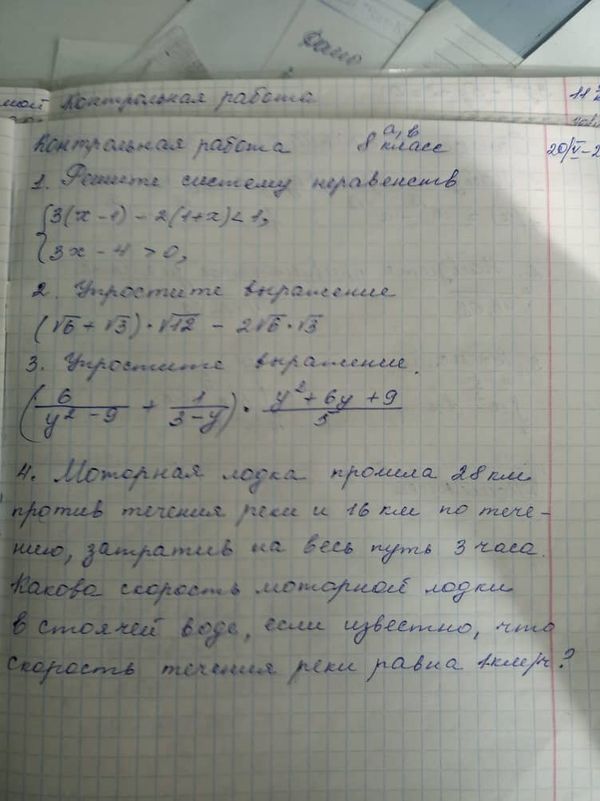 Дано
мой Контрольная работа
Контрольная работа 8 а, в класс
1. Решите систему неравенств
{3(x-1) - 2(1+x) < 1,
3x - 4 > 0,
2. Упростите выражение
(√6 + √3) · √12 - 2√6 · √3
3. Упростите выражение.
(6/(y² - 9) + 1/(3-y)) · (y² + 6y + 9)/5
4. Моторная лодка прошла 28 км
против течения реки и 16 км по тече-
нию, затратив на весь путь 3 часа.
Какова скорость моторной лодки
в стоячей воде, если известно, что
скорость течения реки равна 1км/ч?